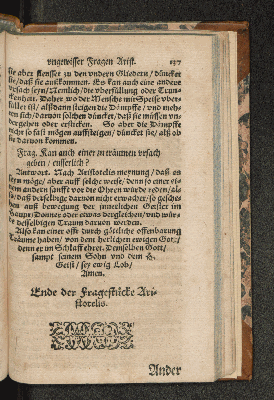 vngewisser Fragen Arist. 137
sie aber fleusset zu den vndern Gliedern / düncket
sie / daß sie auffkommen. Es kan auch eine andere
vrsach seyn / Nemlich / die vberfüllung oder Trun-
ckenheit. Daher wo der Mensche mit Speise vber-
füllet ist / alßdann steigen die Dämpffe / vnd meh-
ren sich / darvon solchen düncket / daß sie müssen vn-
dergehen oder ersticken. So aber die Dämpffe
nicht so fast mögen auffsteigen / düncket sie / als ob
sie darvon kommen.
Frag. Kan auch einer in träumen vrsach
geben / eusserlich?
Antwort. Nach Aristotelis meynung / daß es
seyn möge / aber auff solche weise / denn so einer ei-
nem andern sanfft vor die Ohren würde reden / als
daß derselbige darvon nicht erwachet / so gesches
hen auß bewegung der innerlichen Geister im
Haupt / Donner oder etwas dergleichen / vnd wür-
de desselbigen Traum darvon werden.
Also kan einer offt durch göttliche offenbarung
Träume haben / von dem herrlichen ewigen Got /
denn er im Schlaff ehret. Demselben Gott /
sampt seinem Sohn vnd dem H.
Geist / sey ewig Lob /
Amen.
Ende der Fragestücke Ari-
stotelis.
Ander